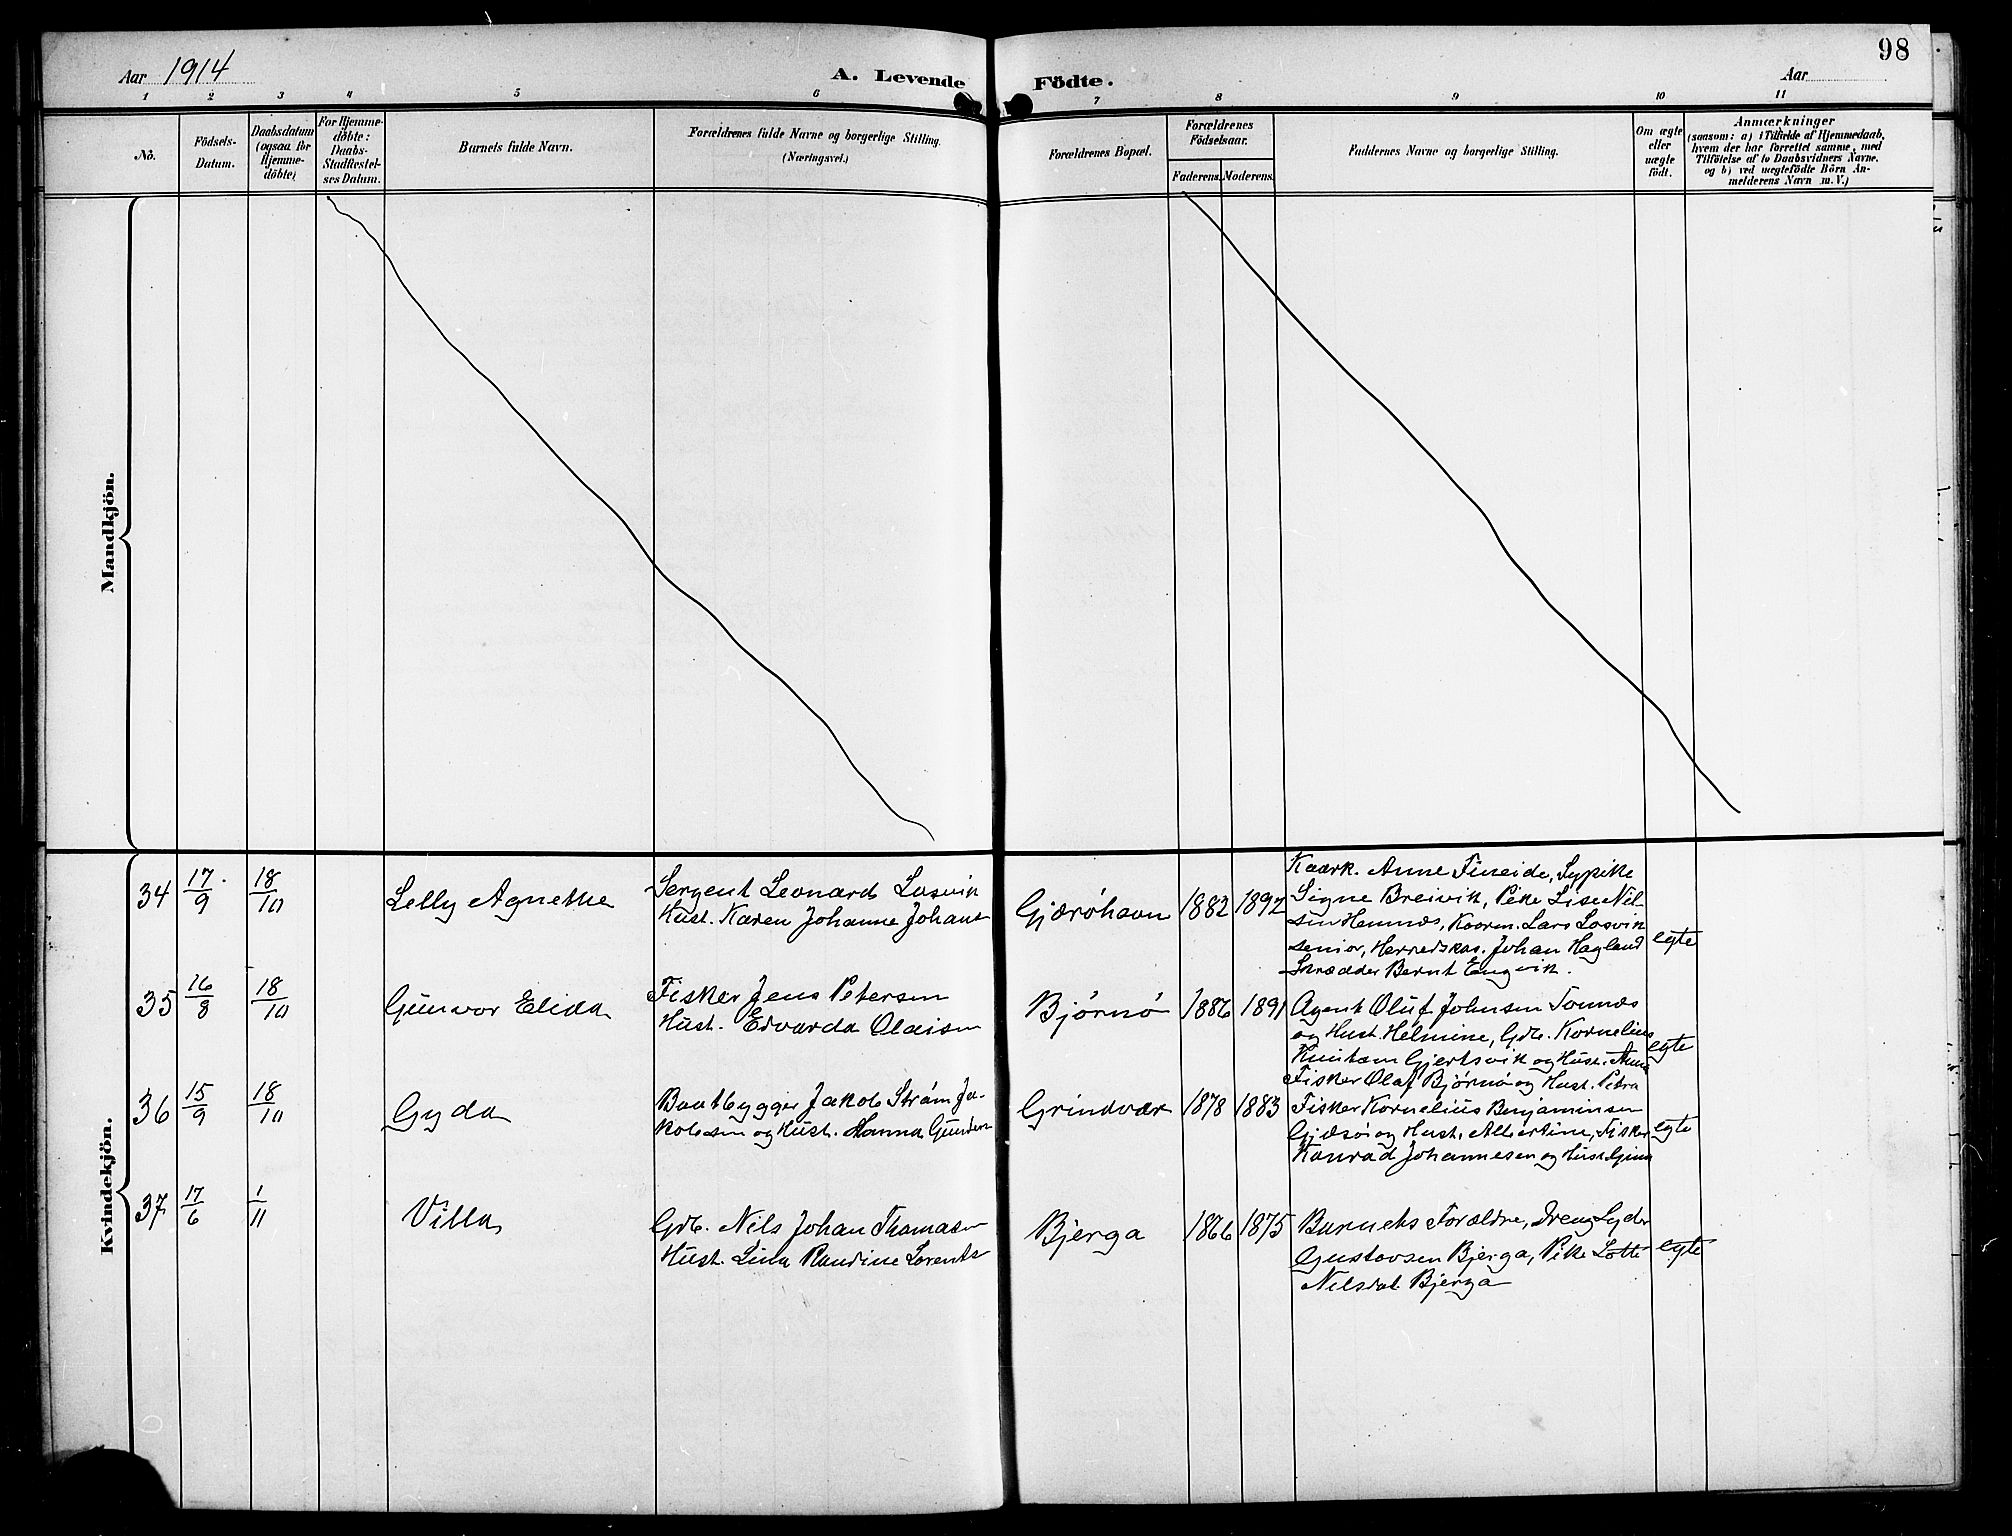 98
Aar 1914
A. Levende
Födte.
Aar
1 2 3 4 5 6 7 8 9 10 11
No.
Födsels-
Datum.
Daabsdatum
(ogsaa for
Hjemme-
döbte)
For Hjemme-
döbte:
Daabs-
Stadfæstel-
ses Datum.
Barnets fulde Navn.
Forældrenes fulde Navne og borgerlige Stilling.
(Næringsvei.)
Forældrenes Bopæl.
Forældrenes
Födselsaar.
Faderens. Moderens.
Faddernes Navne og borgerlige Stilling.
Om ægte
eller
uægte
födt.
Anmærkninger
(saasom: a) i Tilfælde af Hjemmedaab,
hvem der har forrettet samme, med
Tilföielse af to Daabsvidners Navne.
og b) ved uægtefödte Börn An-
melderens Navn m. V.)
Mandkjön.
Kvindekjön.
34 17/9 18/10 Lelly Agnethe
Sergent Leonard Losvik
Hust. Karen Johanne Johans
Gjærøhavn 1882 1892
Kaark. Anne Fineide, Sypike
Signe Breivik, Pike Lise Nil-
sen Hemnes, Kaarm. Lars Losvik
senior, Herredskas. Johan Hagland
Skrædder Bernt Engvik.
egte
35 16/8 18/10 Gunvor Elida
Fisker Jens Petersen
Hust. Edvarda Olaisen
Bjørnø 1886 1891
Agent Oluf Johnsen Tonnes
og Hust. Helmine, Gdb. Kornelius
Gjertsvik og Hust. Anna
Fisker Olaf Bjørnø og Hust. Petra
egte
36 15/9 18/10 Gyda
Baatbygger Jakob Strøm Ja-
kobsen og Hust. Hanna Gunders
Grindvær 1878 1883
Fisker Kornelius Benjaminsen
Gjæsø og Hust. Albertine, Fisker
Konrad Johannesen og Hust. Gina
egte
37 17/6 1/11 Villa
Gdb. Nils Johan Thomasen
Hust. Lina Randine Lorents
Bjerga 1866 1875
Barnets Forældre, Dreng Lyder
Gustavsen Bjerga, Pike Lotte
Nilsdat. Bjerga
egte